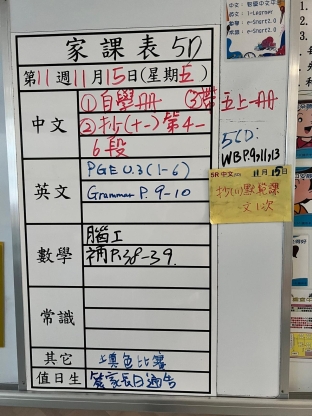 家課表 5D
第11週11月15日(星期五)
中文
①自學冊 ③帶五上一冊
②抄(十一)第4-
6段
英文
PGE U.3 (1-6)
Grammar P. 9-10
數學
腦工
補P.38-39.
常識
其它
填色比賽
值日生
簽家長日通告
5CD:
WB P.9,11,13
5R 中文 11月15日
抄(11)默範課
文1次
中文:
英文: i-Learner
數學: e-Smart2.0
常識: e-Smart2.0